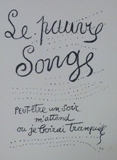 Le pauvre
Songe
Peut-être un soir
m'attend
ou je boirai tranquil